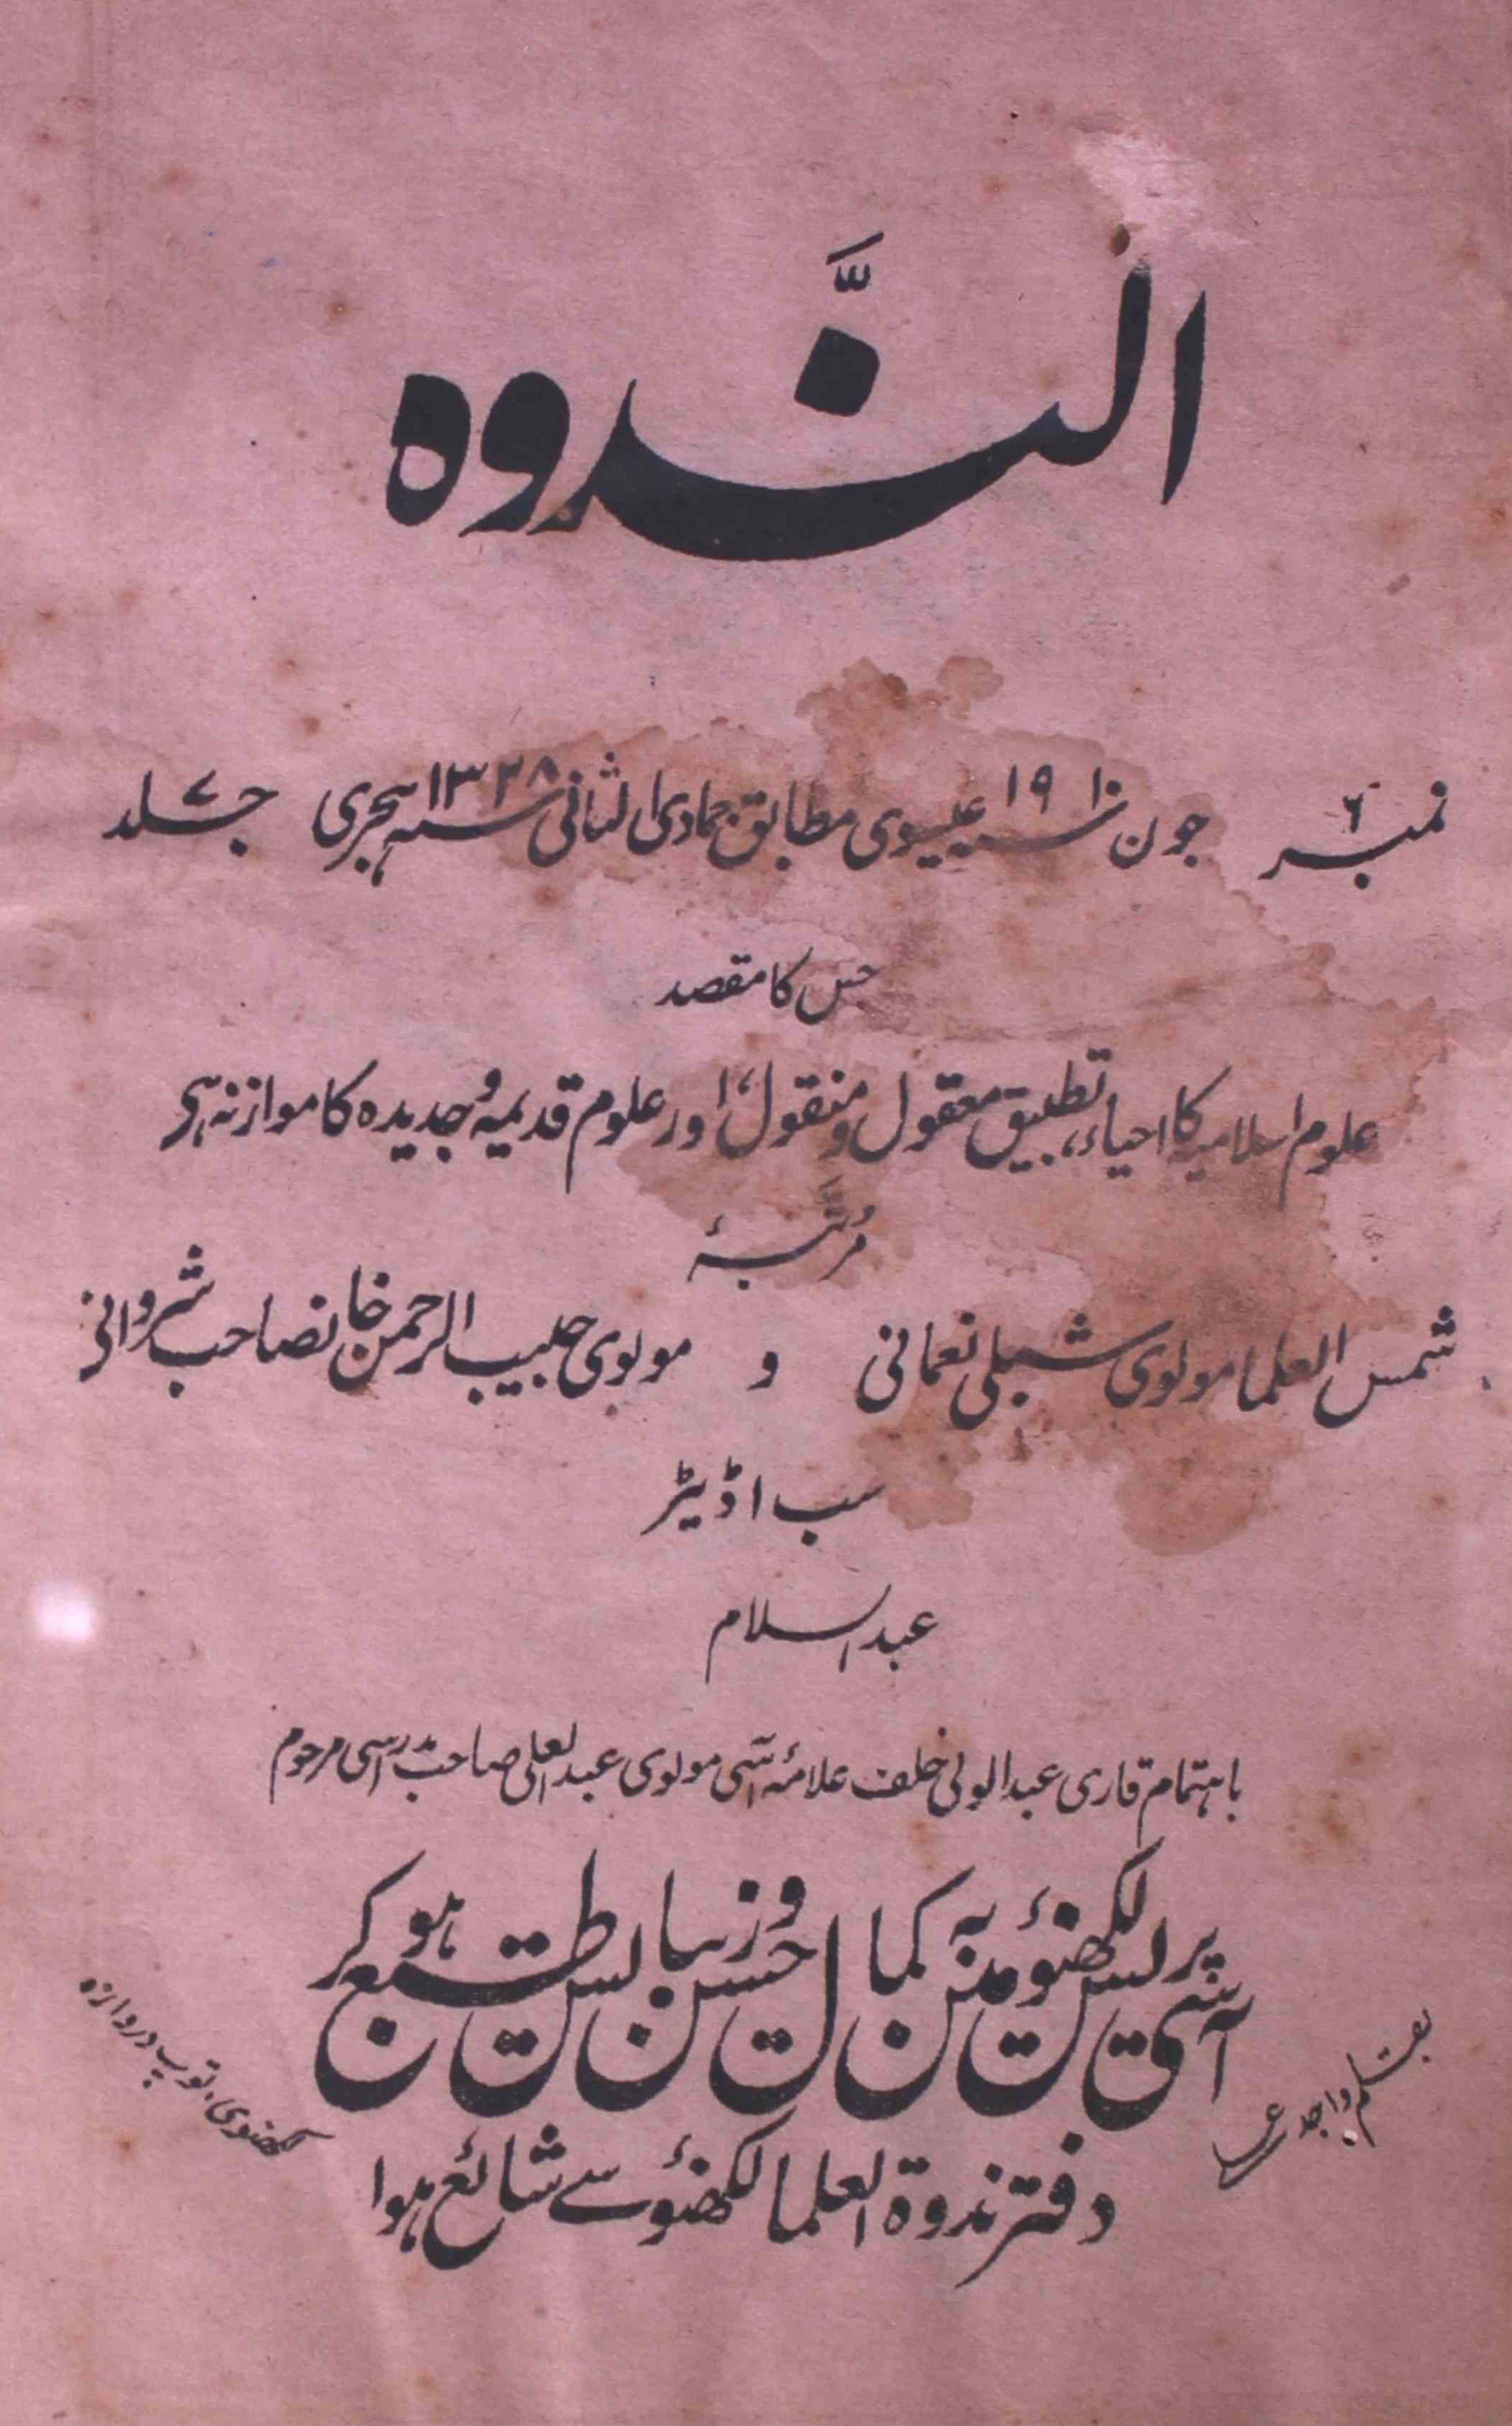 النَّدوہ
نمبر ۶ جون سنہ ۱۹۱۰ عیسوی مطابق جمادی الثانی سنہ ۱۳۲۸ ہجری جلد ۷
جس کا مقصد
علوم اسلامیہ کا احیاء، تطبیق معقول و منقول، اور علوم قدیمہ و جدیدہ کا موازنہ ہی
مُرتّبۂ
شمس العلما مولوی شبلی نعمانی و مولوی حبیب الرحمن خانصاحب شروانی
سب اڈیٹر
عبد السلام
باہتمام قاری عبد الولی خلف علامۂ آسی مولوی عبد العلی صاحب مدراسی مرحوم
آسی پریس لکھنؤ مین بہ کمال حسن و زیبا لیس طبع ہو کر
دفتر ندوۃ العلما لکھنؤ سے شائع ہوا
بقلم واجد
لکھنوی، توپ دروازہ